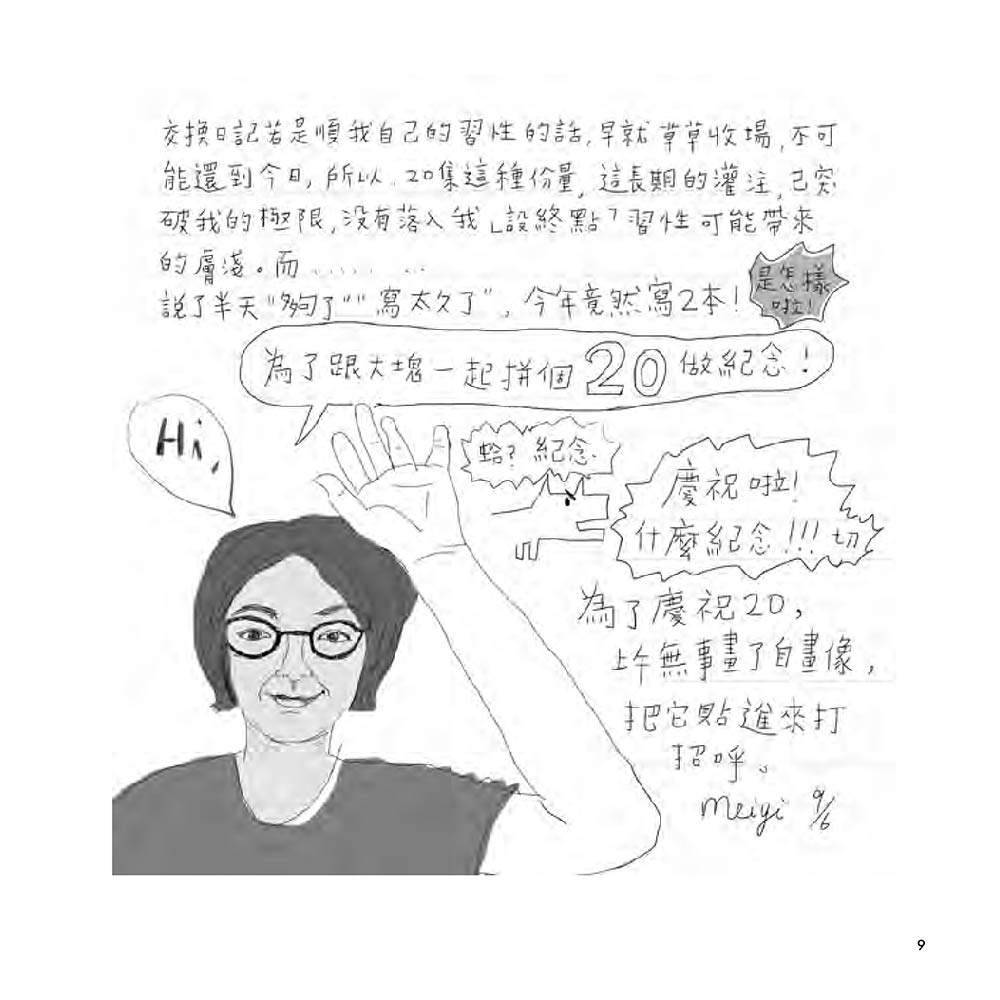 交換日記若是順我自己的習性的話,早就草草收場,不可
能還到今日,所以..20集這種份量,這長期的灌注,已突
破我的極限,沒有落入我「設終點」習性可能帶來
的膚淺。而........
說了半天"夠了""寫太久了",今年竟然寫2本!
是怎樣
啦!
為了跟大塊一起拼個20做紀念!
Hi,
蛤?紀念.
慶祝啦!
什麼紀念!!!切
為了慶祝20,
上午無事畫了自畫像,
把它貼進來打
招呼。
meiyi 9/6
9